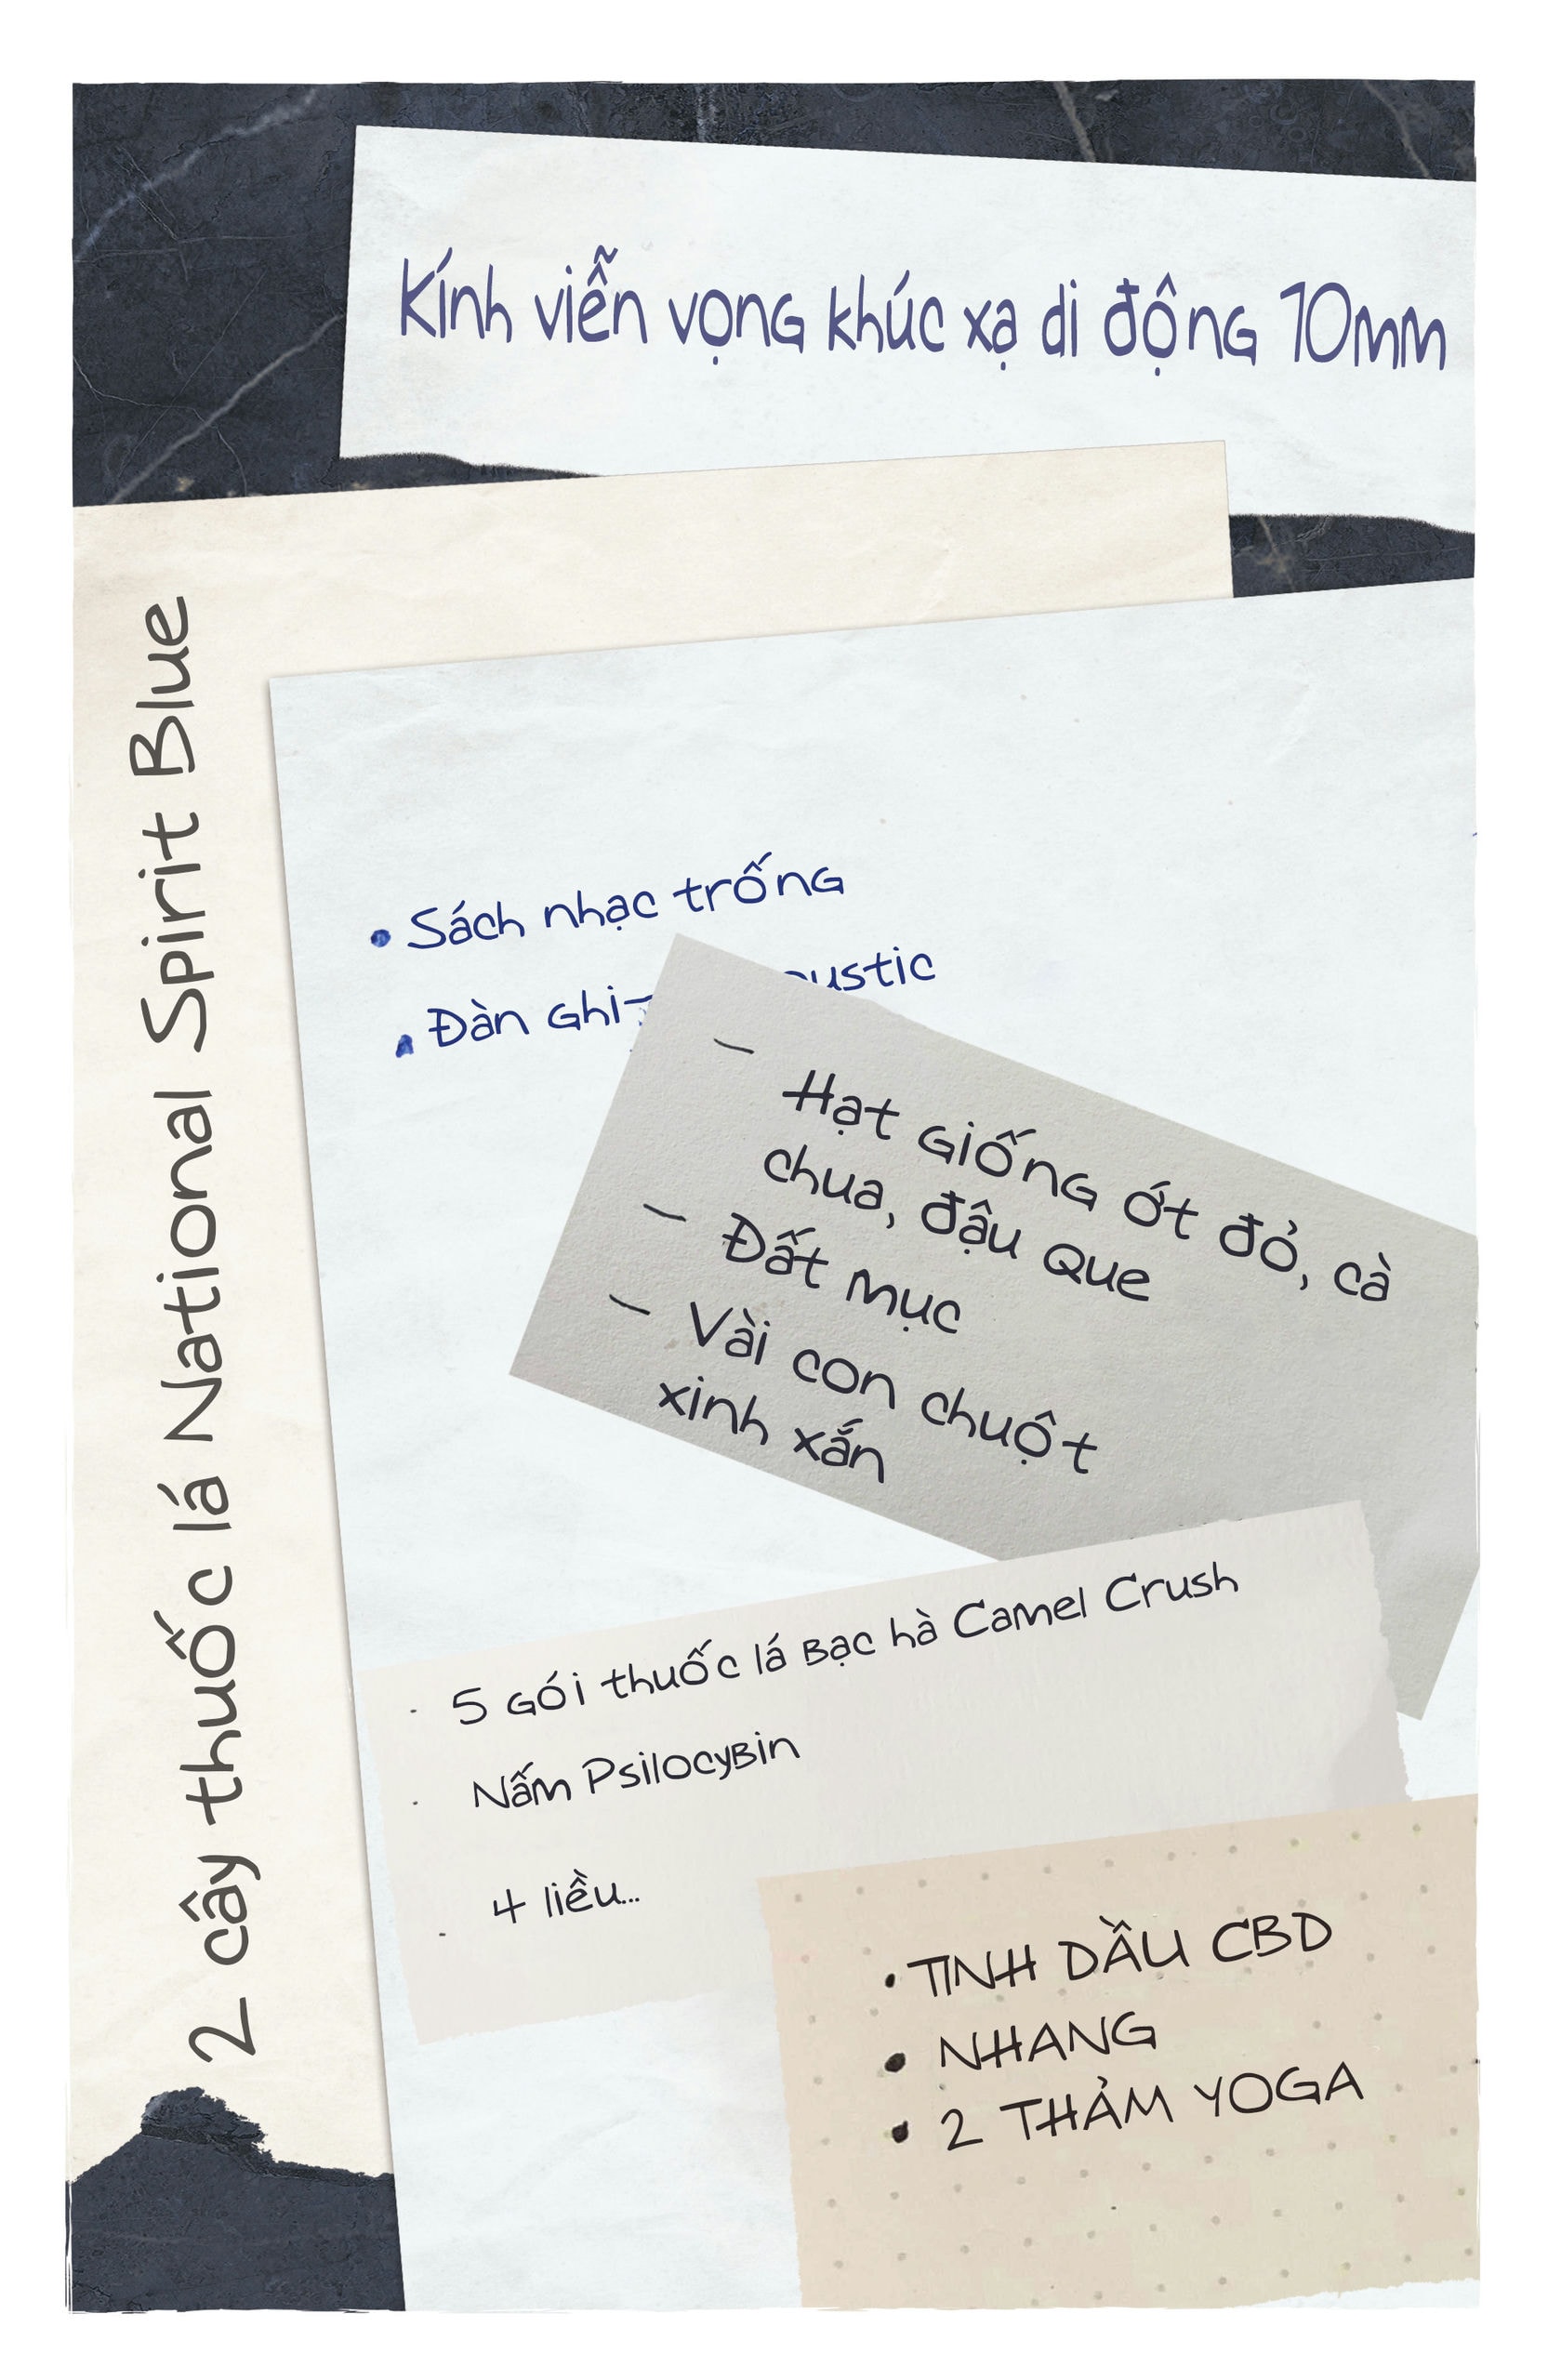 Kính viễn vọng khúc xạ di động 70mm
2 cây thuốc lá National Spirit Blue
• Sách nhạc trống
• Đàn Ghi
- Hạt giống ớt đỏ, cà
chua, đậu que
- Đất mục
- Vài con chuột
xinh xắn
· 5 gói thuốc lá bạc hà Camel Crush
· Nấm Psilocybin
· 4 liều...
• TINH DẦU CBD
• NHANG
• 2 THẢM YOGA